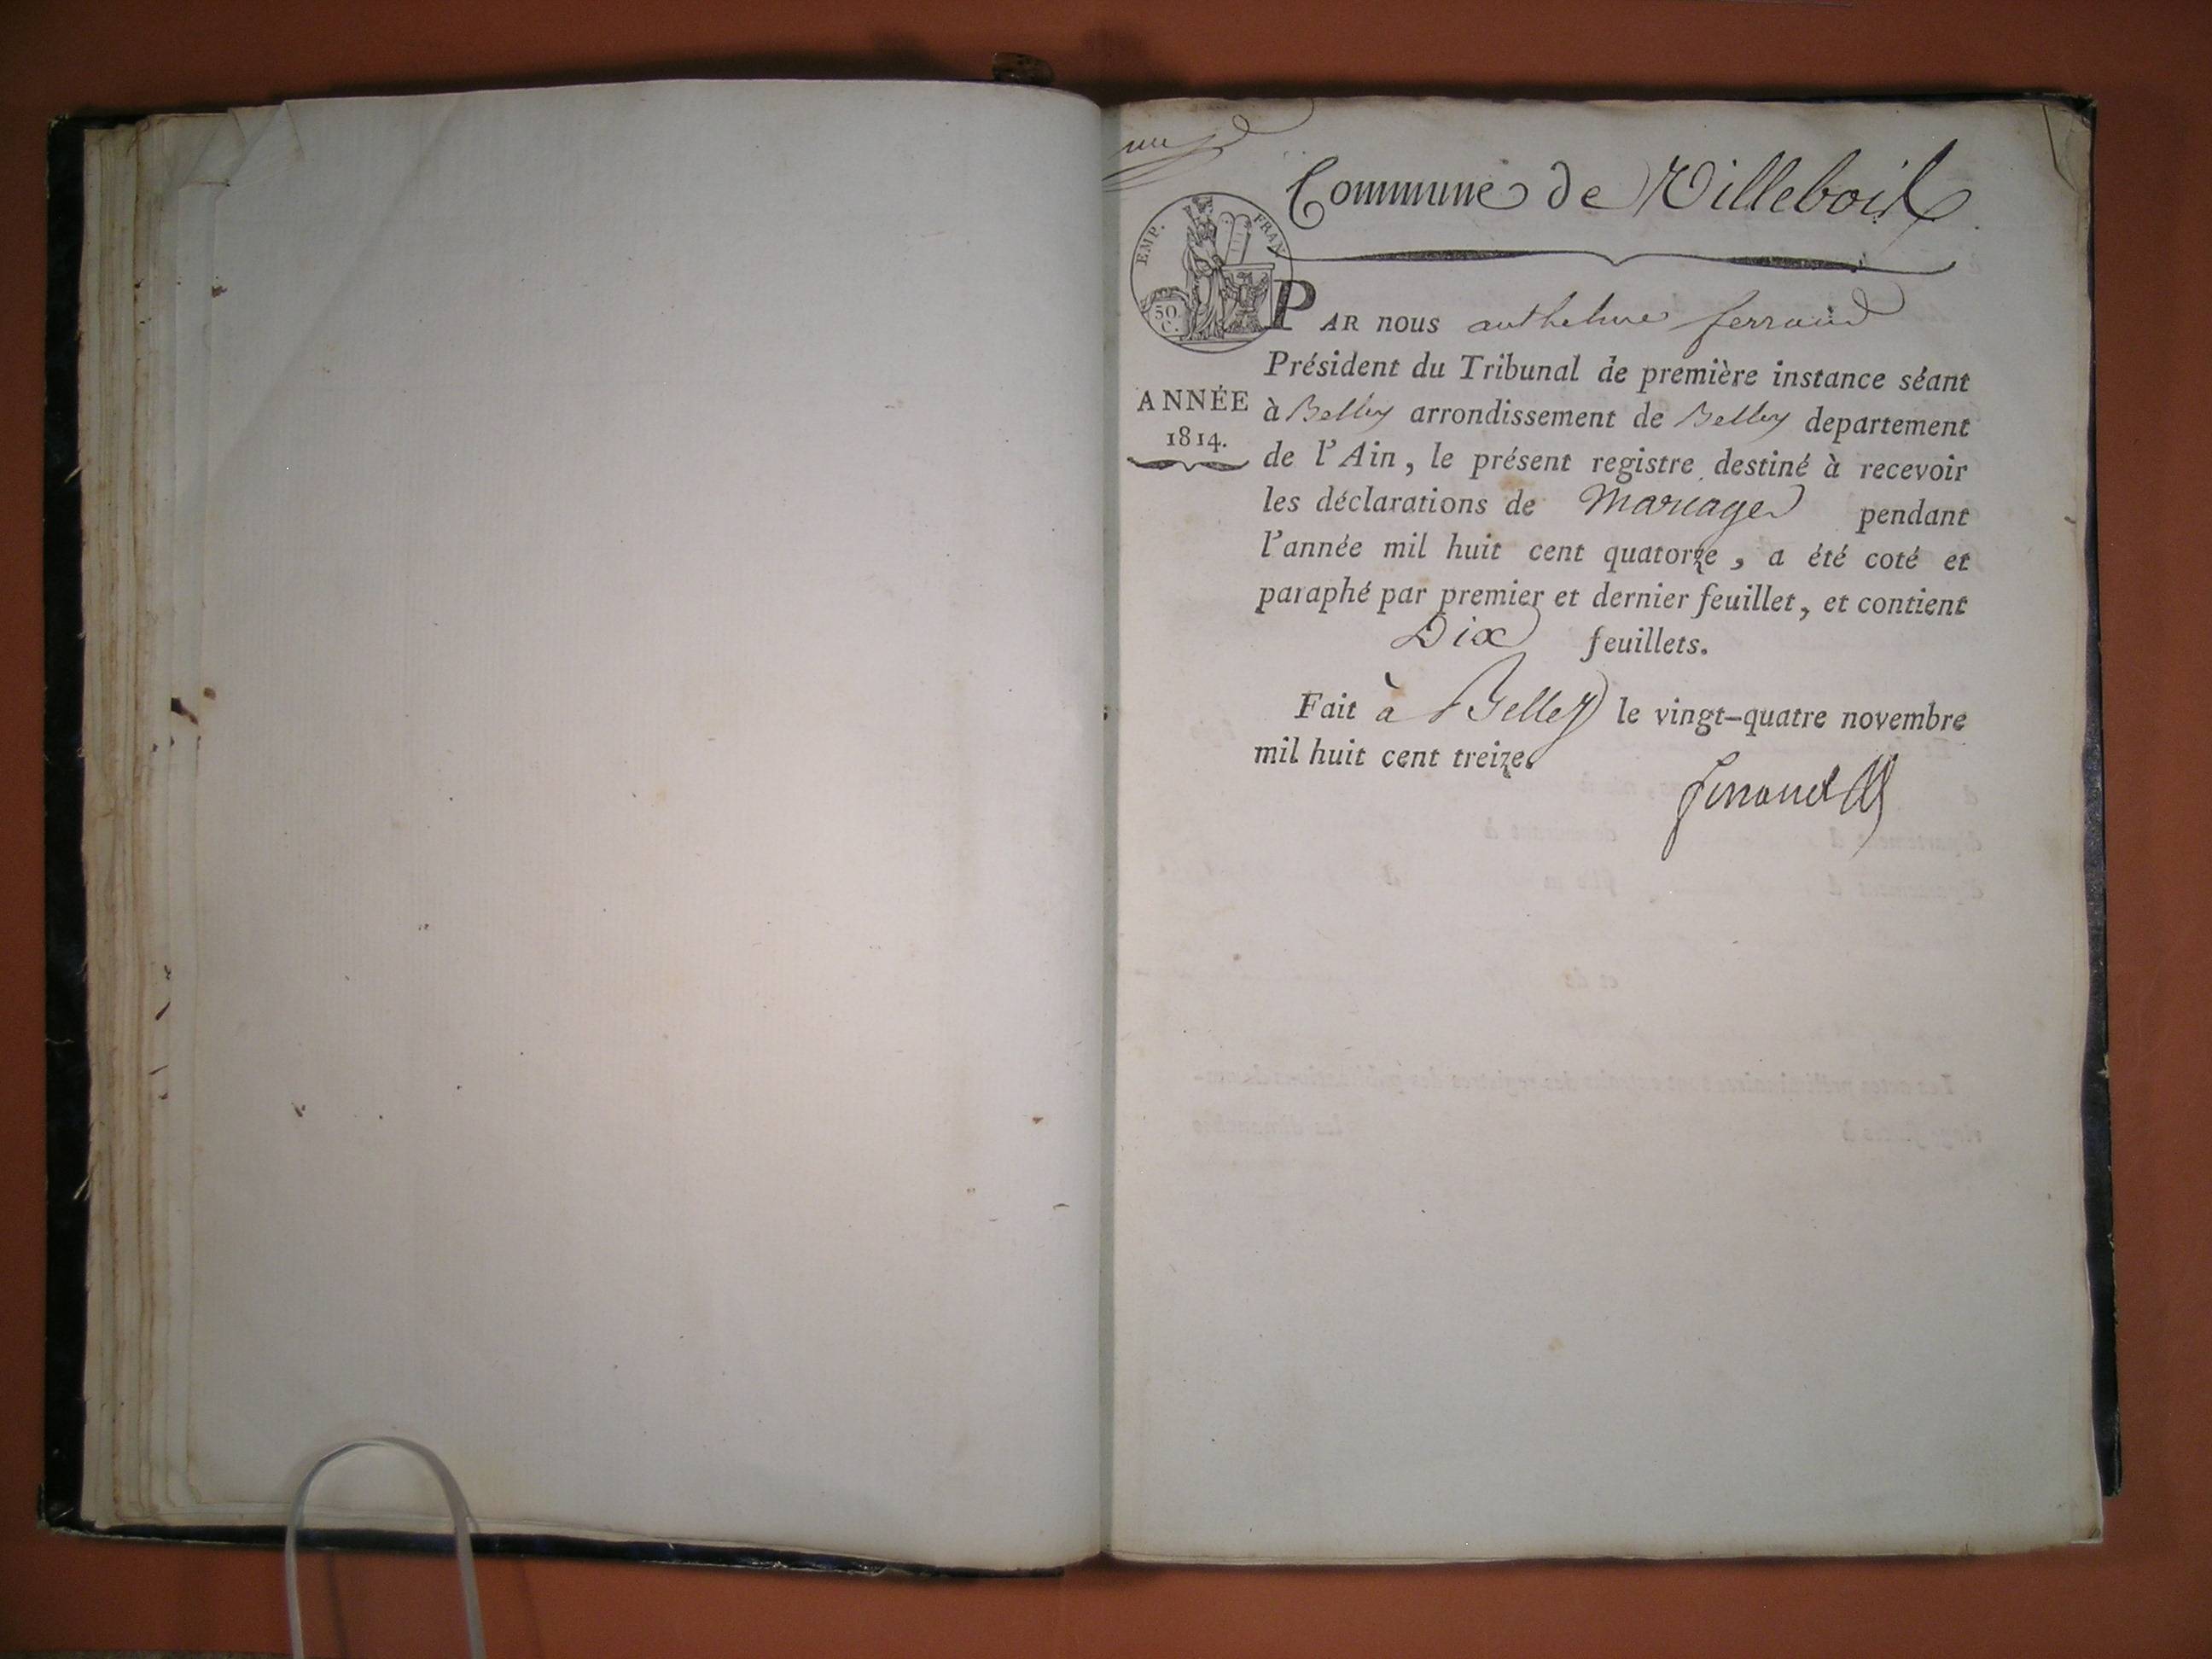 Commune de Villebois
EMP. FRAN
50.
C.
PAR nous anthelme ferrand
Président du Tribunal de première instance séant
ANNÉE
1814.
à Belley arrondissement de Belley departement
de l'Ain, le présent registre destiné à recevoir
les déclarations de Mariages pendant
l'année mil huit cent quatorze, a été coté et
paraphé par premier et dernier feuillet, et contient
Dix feuillets.
Fait à Belley le vingt-quatre novembre
mil huit cent treize.
ferrand